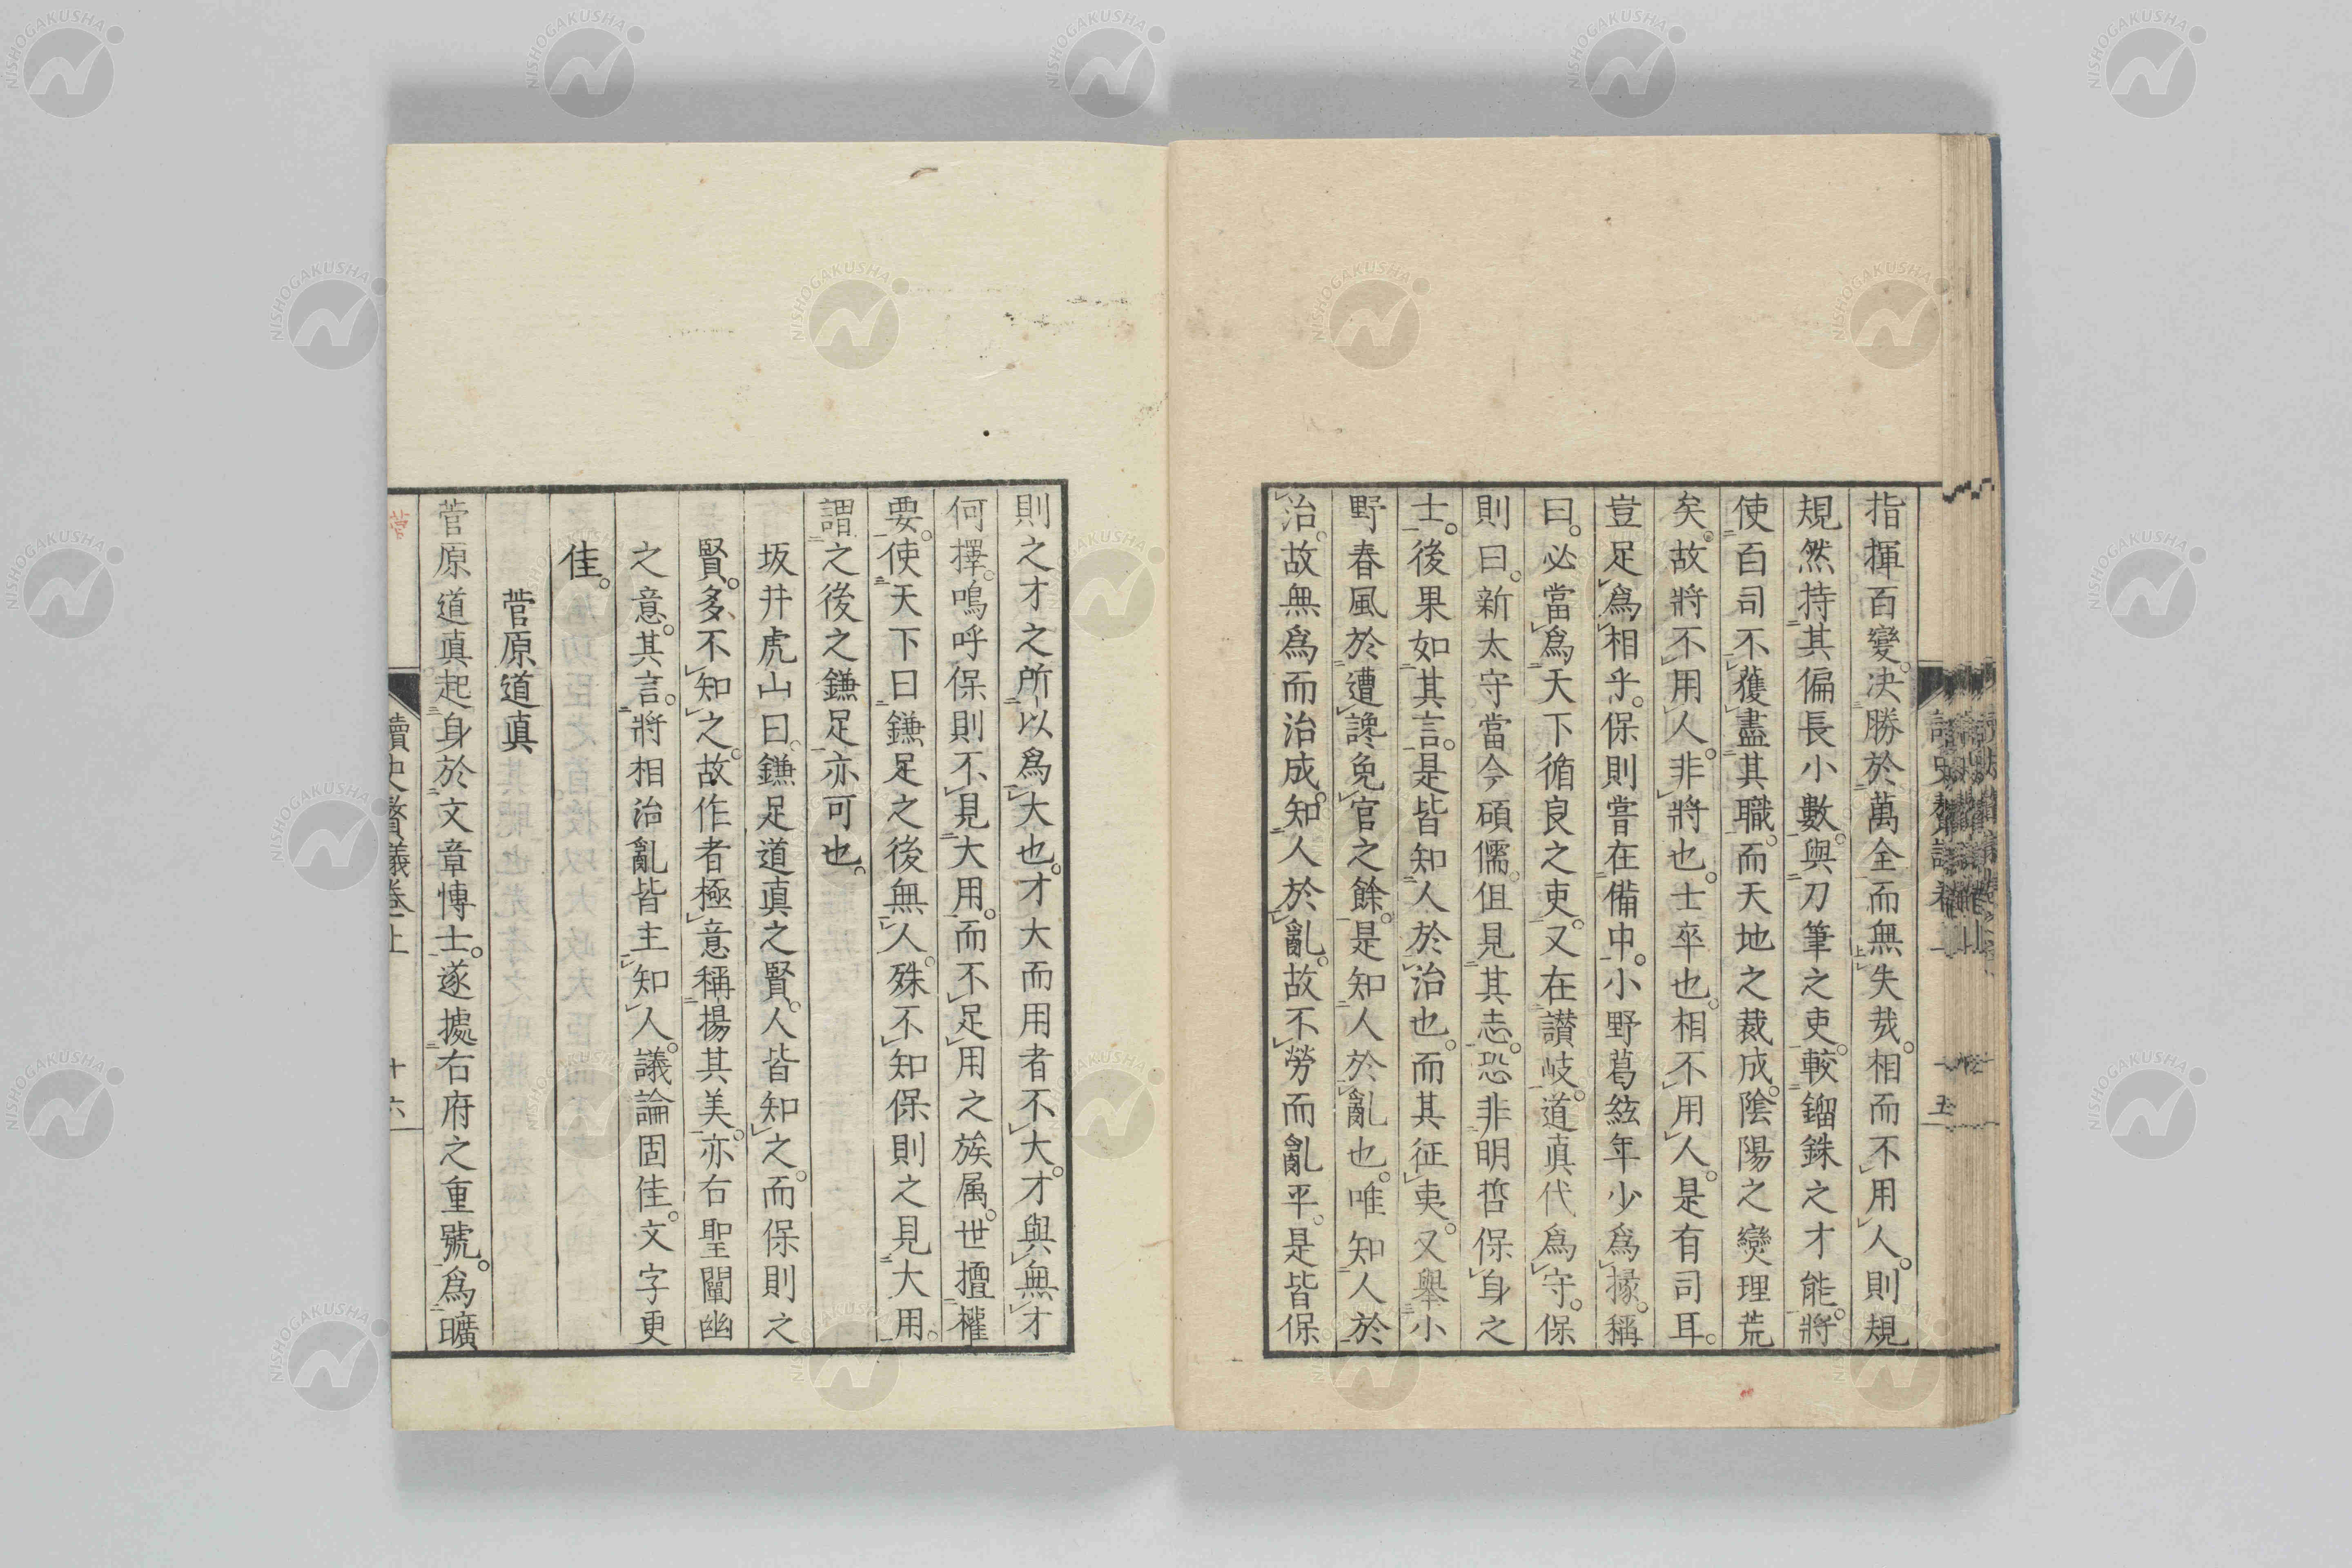 指揮百變。决勝於萬全而無失㢤。相而不用人。則規
規然持其偏長小數。與刀筆之吏。較錙銖之才能。將
使百司不獲盡其職。而天地之裁成。陰陽之燮理荒
矣。故將不用人。非將也。士卒也。相不用人。是有司耳。
豈足爲相乎。保則嘗在備中。小野葛絃年少爲掾。稱
曰。必當爲天下循良之吏。又在讃岐。道真代爲守。保
則曰。新太守當今碩儒。但見其志。恐非明哲保身之
士。後果如其言。是皆知人於治也。而其征夷。又舉小
野春風於遭讒免官之餘。是知人於亂也。唯知人於
治。故無爲而治成。知人於亂。故不勞而亂平。是皆保
則之才之所以爲大也。才大而用者不大。才與無才
何擇。嗚呼保則不見大用。而不足用之族属。世擅權
要。使天下曰鎌足之後無人。殊不知保則之見大用。
謂之後之鎌足亦可也。
坂井虎山曰。鎌足道真之賢。人皆知之。而保則之
賢。多不知之。故作者極意稱揚其美。亦右聖闡幽
之意。其言。將相治亂皆主知人。議論固佳。文字更
佳。
菅原道真
菅原道真起身於文章博士。遂據右府之重號。爲曠
讀史贅議卷上
十六
菅
NISHOGAKUSHA